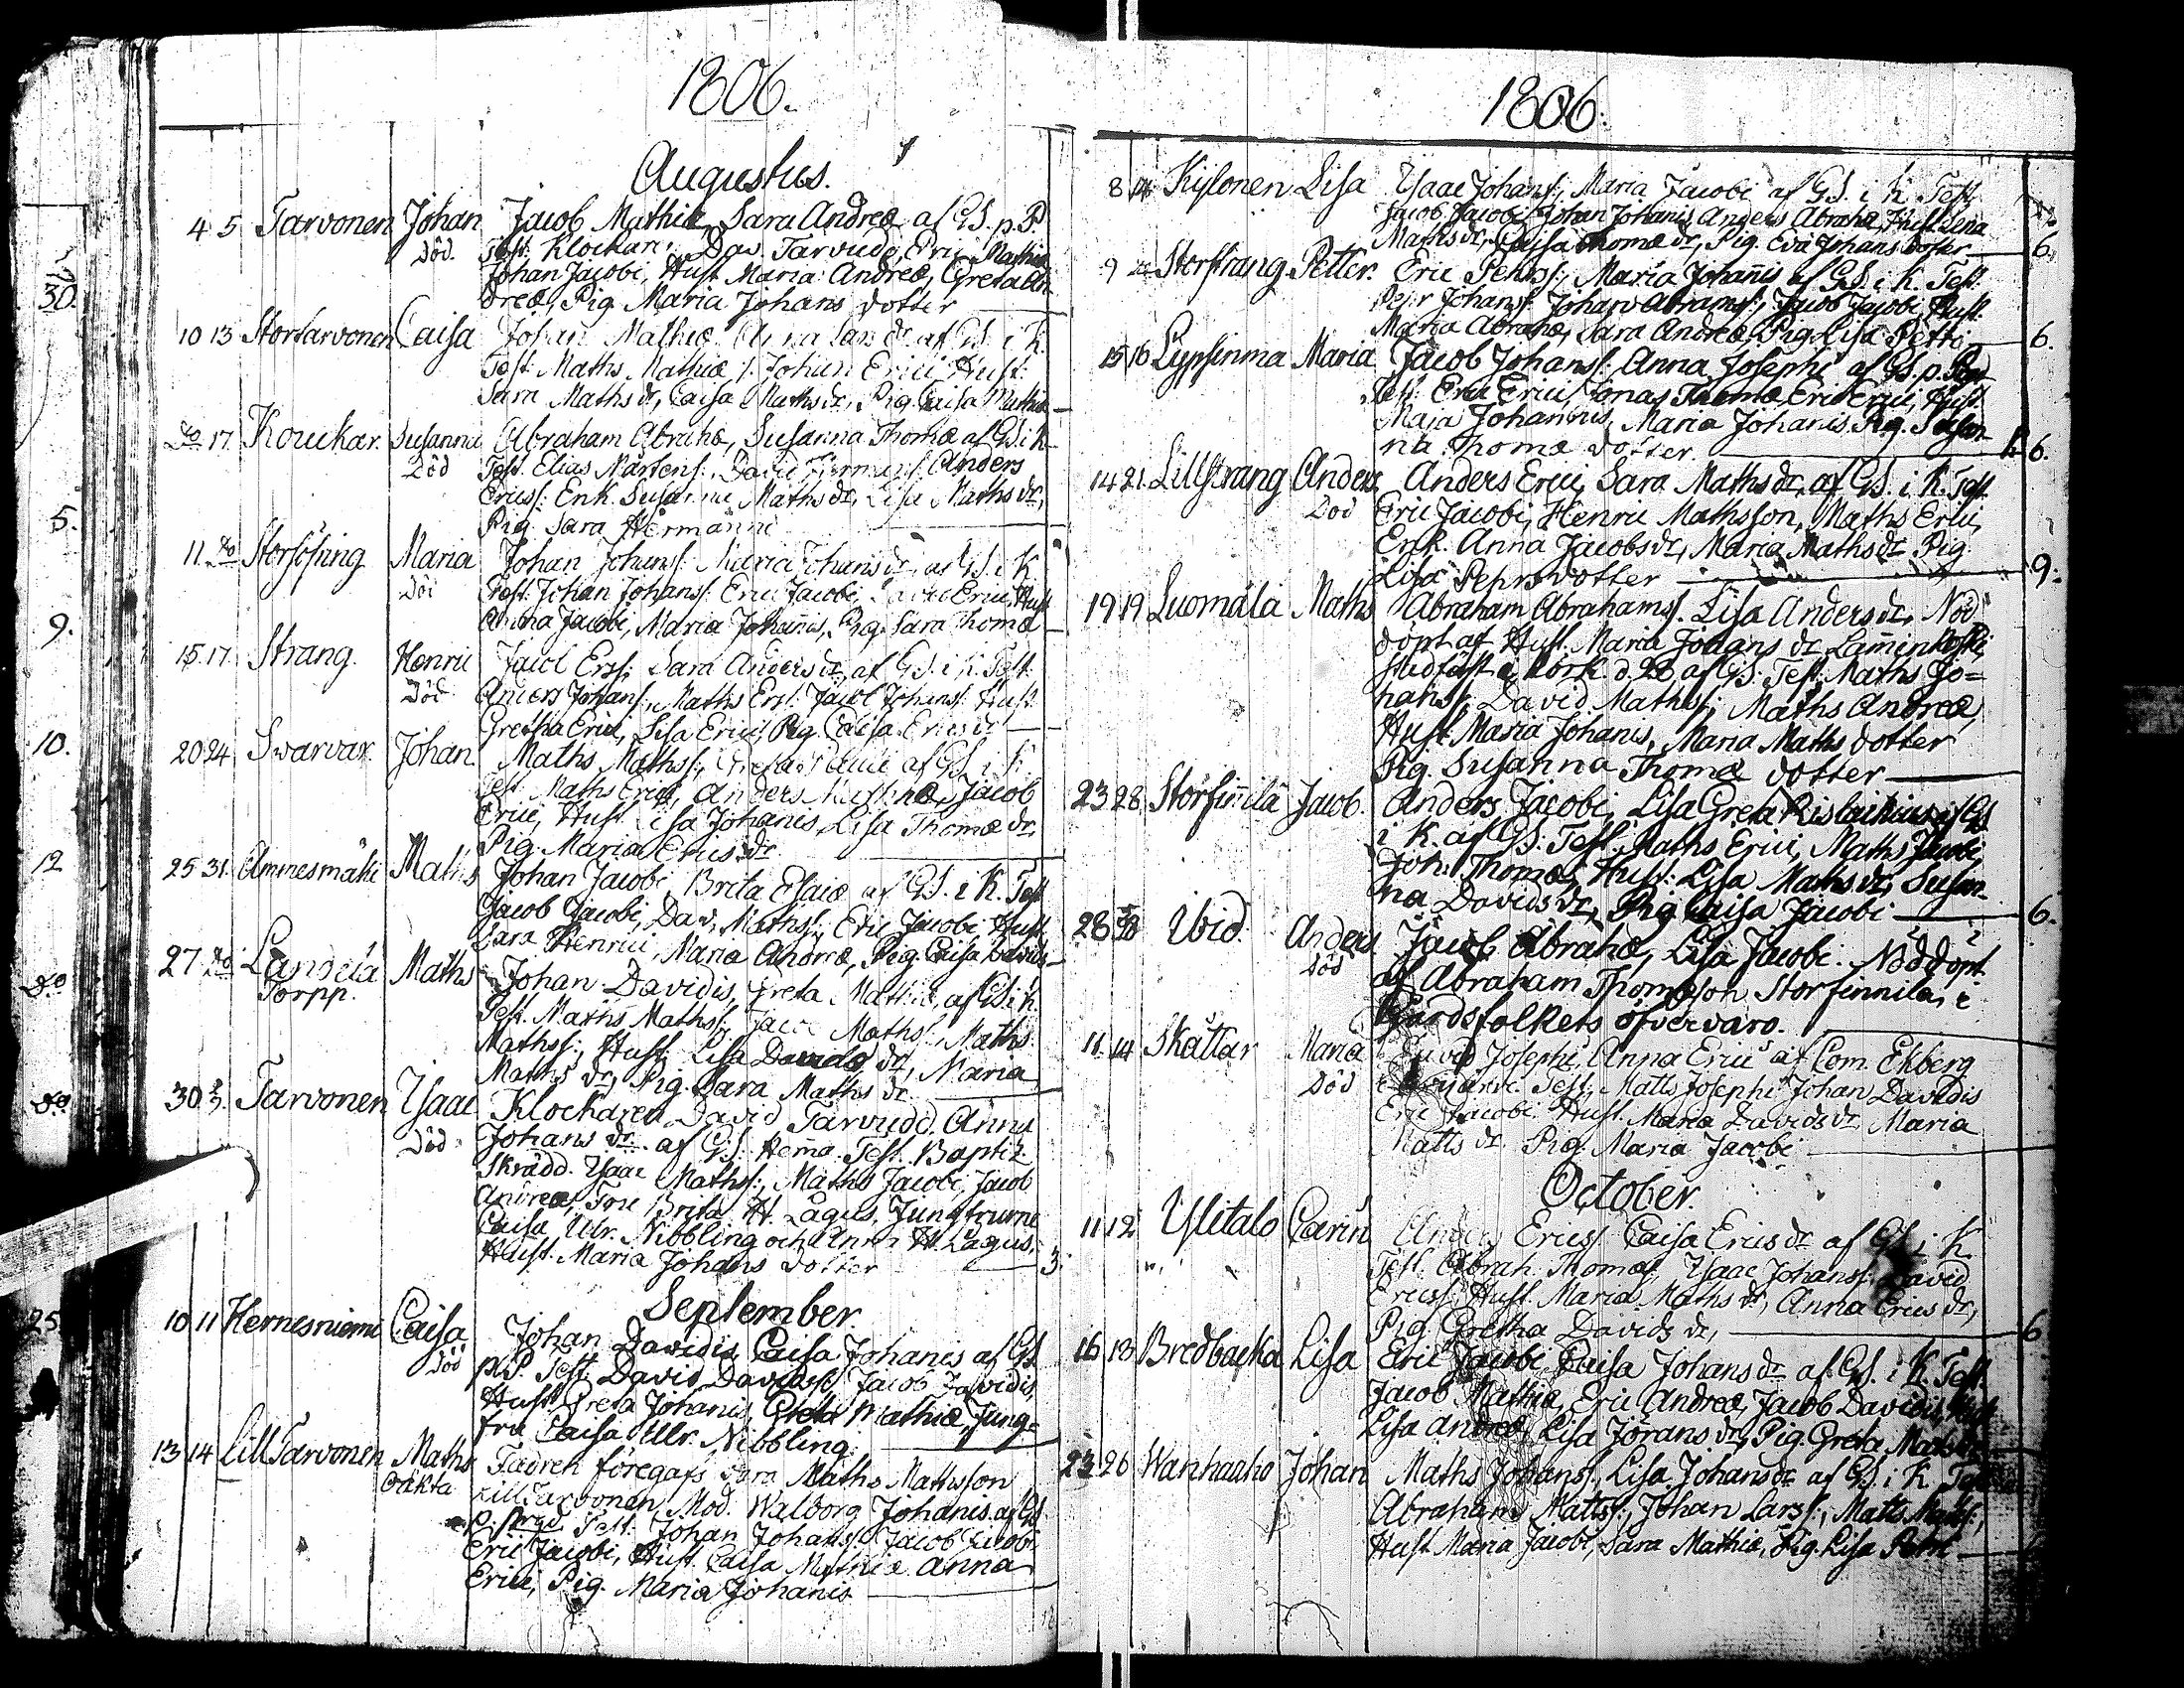 1806.
Augustus.
4 5 Tarvonen Johan Jacob Mathiæ, Sara Andreæ af GS. p. P.
Död. Test. Klockar: Dav. Tarvudd, Eric Mathiæ
Johan Jacobi, Hust. Maria Andreæ, Greta An-
dreæ, Pig. Maria Johans dotter
10 13 Stortarvonen Caisa Johan Mathiæ Anna Lars dr. af GS. i K.
Test. Maths Mathiæ, Johan Erici Hust.
Sara Maths dr, Caisa Maths dr, Pig. Caisa Mathiæ
Do 17 Kouckar. Susanna Abraham Abrahæ, Susanna Thomæ af GS. i K
Död Test. Elias Mårtens: David Hermans: Anders
Ericss: Enk. Susanna Maths dr, Lisa Maths dr,
Pig. Sara Hermanni
11. Do Storfösing Maria Johan Johans: Maria Johans dr, af GS. i K
Död Test. Johan Johans: Eric Jacobi, Erici, Hust
Anna Jacobi, Maria Johannis, Pig. Sara Thomæ
15 17. Strang. Henric Jacob Ers: Sara Anders dr, af GS. i K. Test.
Död Anders Johans: Maths Ers: Jacob Johans: Hust.
Gretha Erici, Lisa Erici, Pig. Caisa Erics dr
20 24 Swarvar. Johan. Maths Maths: Greta af GS. i K.
Test. Maths Erici, Anders Mathiæ, Jacob
Erici, Hust. Lisa Johanis, Lisa Thomæ dr,
Pig. Maria Erics dr
25 31. Ammesmäki Maths Johan Jacobi, Brita Esaiæ af GS. i K. Test
Jacob Jacobi, Dav. Maths: Eric Jacobi Hust.
Sara Henrici, Maria Andreæ, Pig. Caisa Davids
27 Do Maths Johan Davidis, Greta Mathiæ, af GS. i K.
Torpp. Test. Maths Maths: Jacob Maths: Maths
Maths: Hust. Lisa Davids dr, Maria
Maths dr, Pig. Sara Maths dr.
30 Tarvonen Ysaac Klockaren David Tarvudd. Anna
Död Johans dr. af GS. Hema. Test. Baptiz.
Skrädd. Ysaac Maths:, Maths Jacobi, Jacob
Andreæ, Fru Brita H. Lagus, Jungfrurne
Caisa Ulr. Nibbling och Anna H. Lagus,
Hust. Maria Johans dotter 3.
September.
10 11 Hernesniemi Caisa Johan Davidis, Caisa Johanis af GS
Död p. P. Test. David Davids: Jacob Davidis,
Hust. Greta Johanis, Greta Mathiæ, Jung-
fru Caisa Ulr. Nibbling.
13 14 LillTarvonen Maths Fadren föregafs vara Maths Mathsson
Oäkta LillTarvonen Mod. Walborg Johanis af GS
p. Pred. Test. Johan Johans: Jacob Jacobi
Eric Jacobi, Hust. Caisa Mathiæ Anna
Erici, Pig. Maria Johanis
30.
5.
9.
10.
12
Do
Do
25.
1806.
8 14 Kylönen Lisa Ysaac Johans:, Maria Jacobi af GS. i K. Test,
Jacob Jacobi, Johan Johanis, Anders Abrahæ, Hust. Lena
Maths dr, Caisa Thomæ dr, Pig. Eva Johans dotter 6.
9 Storstrang Petter. Eric Pehrs:, Maria Johanis af GS. i K. Test.
Pehr Johans: Johan Abrams:, Jacob Jacobi, Hust.
Maria Abrahæ, Sara Andreæ, Pig. Lisa Petri 6.
15 16 Maria Jacob Johans: Anna Josephi af GS. p. Pred
Test. Eric Erici, Jonas Thomæ Eric Erici, Hust.
Maja Johannis, Maria Johanis, Pig. Susan-
na Thomæ dotter 6.
14 21. Lillstrang Anders Anders Erici, Sara Maths dr, af GS. i K. Test.
Död Eric Jacobi, Henric Mathsson, Maths Erici,
Enk. Anna Jacobs dr, Maria Maths dr Pig.
Lisa Pehrs dotter 9.
19 19 Luomala Maths Abraham Abrahams: Lisa Anders dr, Nöd-
döpt af Hust. Maria Johans dr Laminkoski,
stadfäst i Kyrk. d. 22 af GS. Test. Maths Jo=
hans:, David Maths:, Maths Andreæ,
Hust. Maria Johanis, Maria Maths dotter
Pig. Susanna Thomæ dotter
23 28 Storfinnilä Jacob. Anders Jacobi, Lisa Greta af GS
i K. af GS. Test. Maths Erici, Maths Jacobi,
Joh: Thomæ, Hust. Lisa Maths dr, Susan-
na Davids dr, Pig. Caisa Jacobi 6.
28 30 Ibid. Anders Jacob Abrahæ, Lisa Jacobi. Nöddöpt
Död af Abraham Thomsson Storfinnila, i
Gårdsfolkets öfvervaro.
11 14 Skattar Maria David Josephi, Anna Erici af Com. Ekberg
Död Test. Matts Josephi Johan Davidis
Eric Jacobi Hust. Maria Davids dr, Maria
Matts dr Pig. Maria Jacobi
October.
11 12 Ylitalo Carin Anders Ericss: Caisa Erics dr af GS i K
Test. Abrah. Thomæ, Ysaac Johans: David
Ericss: Hust. Maria Maths dr, Anna Erics dr,
Pig. Gretha Davids dr, 6
16 18 Bredbacka Lisa Eric Jacobi Caisa Johans dr af GS. i K. Test.
Jacob Mathiæ, Eric Andreæ, Jacob Davidis, Hust
Lisa Andreæ, Lisa Jörans dr, Pig. Greta Maths dr
23 26 Wanhaaho Johan Maths Johans:, Lisa Johans dr af GS. i K Test
Abraham Matts:, Johan Lars:, Matts Matts:,
Hust. Maria Jacobi, Sara Mathiæ, Pig. Lisa Petri